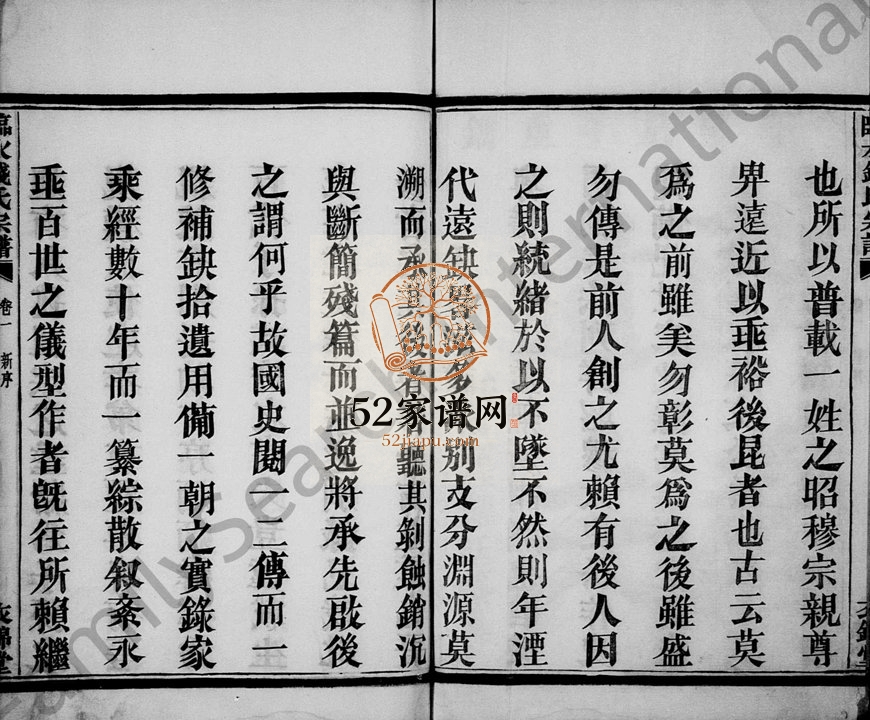 也所以普載一姓之昭穆宗親尊
卑遠近以垂裕後昆者也古云莫
爲之前雖美勿彰莫爲之後雖盛
勿傳是前人創之尤賴有後人因
之則統緒於以不墜不然則年湮
代遠缺畧滋多派别支分淵源莫
溯而承其後者若聽其剝蝕銷沉
與斷簡殘篇而並逸將承先啟後
之謂何乎故國史閱一二傳而一
修補缺拾遺用備一朝之實錄家
乘經數十年而一纂綜散叙紊永
垂百世之儀型作者旣往所賴繼
臨水錢氏宗譜
卷一
新序
衣錦堂
臨水錢氏宗譜
衣錦堂
52家谱网
52jiapu.com
FamilySearch International